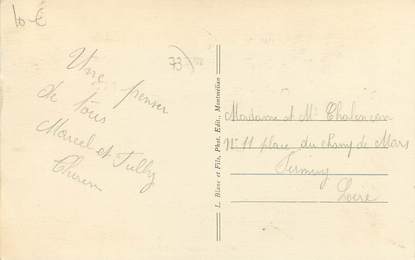 10 €
73
Une penser
de tous
Marcel et
L. Blanc et Fils, Phot. Edit., Montmélian
Madame et Mr Chalencon
N° 11 place du champ de Mars
Firminy
Loire